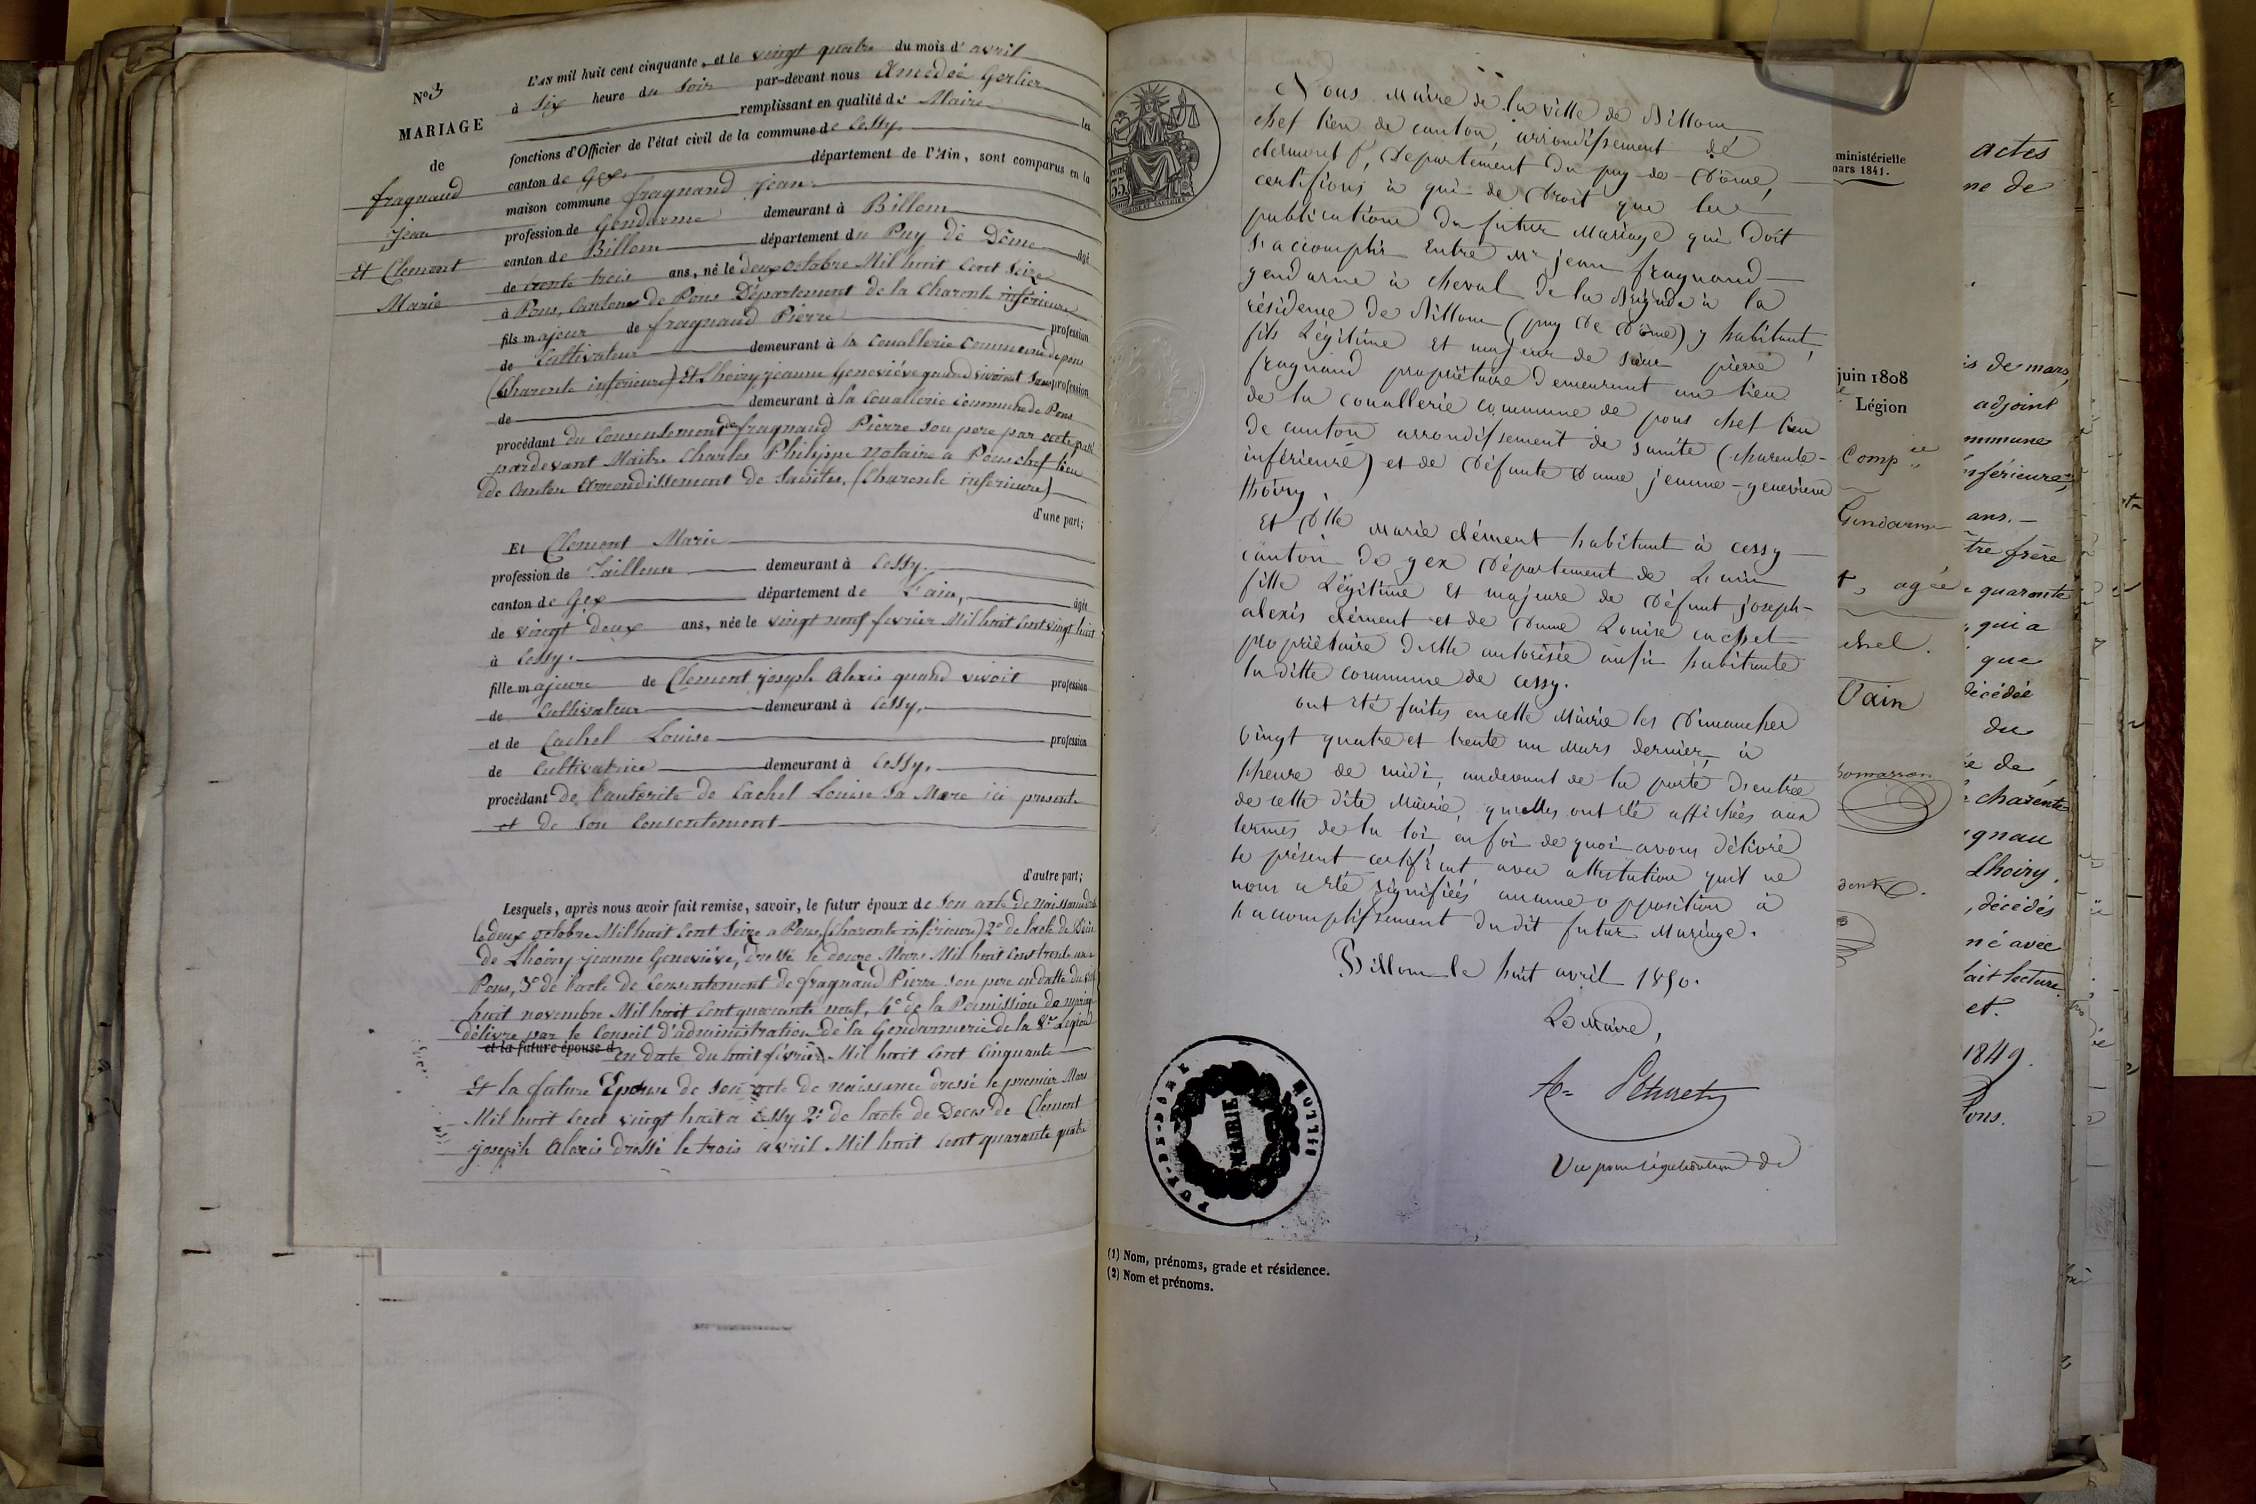 N° 3
MARIAGE
de
fragnaud
Jean
Et Clement
Marie
L'AN mil huit cent cinquante, et le vingt quatre du mois d'avril
à Six heure du Soir par-devant nous Amédée Gerlier
remplissant en qualité de Maire les
fonctions d'Officier de l'état civil de la commune de Cessy
canton de Gex département de l'Ain, sont comparus en la
maison commune fragnaud Jean
profession de Gendarme demeurant à Billom
canton de Billom département du Puy de Dôme âgé
de trente trois ans, né le deux octobre Mil huit Cent Seize
à Pons, Canton de Pons Département de la Charente inférieure
fils majeur de fragnaud Pierre profession
de Cultivateur demeurant à la Couallerie Commune de pons
(Charente inférieure) Et Lhoiry jeanne Geneviève quand vivoit Sans profession
de demeurant à la Couallerie Commune de Pons
procédant du Consentement de fragnaud Pierre Son pere par acte passé
pardevant Maitre Charles Philippe Notaire a Pons chef lieu
de Canton Arrondissement de Saintes, (Charente inférieure)
d'une part;
Et Clement Marie
profession de Tailleuse demeurant à Cessy.
canton de Gex département de L'ain, âgée
de vingt deux ans, née le vingt neuf fevrier Mil huit Cent vingt huit
à Cessy.
fille majeure de Clement joseph Alexis quand vivoit profession
de Cultivateur demeurant à Cessy,
et de Cachel Louise profession
de Cultivatrice demeurant à Cessy,
procédant de l'autorité de Cachel Louise Sa Mere ici presente
et de Son Consentement
d'autre part;
Lesquels, après nous avoir fait remise, savoir, le futur époux de Son acte de Naissance
le deux octobre Mil huit Cent Seize a Pons, (Charente inférieure) 2° de l'acte de Décès
de Lhoiry jeanne Geneviève, dressé le douze Mars Mil huit Cent trente un a
Pons, 3° de l'acte de Consentement de fragnaud Pierre Son pere en datte du vingt
huit novembre Mil huit Cent quarante neuf, 4° de la Permission de mariage
délivré par le Conseil d'administration de la Gendarmerie de la 8me Légion
et la future épouse d en date du huit février Mil huit Cent Cinquante
Et la future Epouse de Son acte de naissance dressé le premier Mars
Mil huit Cent vingt huit a Cessy 2° de l'acte de Deces de Clement
joseph Alexis dressé le trois avril Mil huit Cent quarante quatre
Nous Maire de la ville de Billom
chef lieu de canton, arrondissement de
clermont f, Département du puy-de-Dôme,
certifions à qui de Droit que les
publications du futur Mariage qui doit
s'accomplir Entre Mr jean fragnaud
gendarme à cheval de la Brigade à la
résidence de Billom (puy De Dôme) y habitant,
fils Légitime et majeur de sieur pierre
fragnaud propriétaire demeurant au lieu
de la couallerie commune de pons chef lieu
de canton arrondissement de sainte (charente-
inférieure) et de Défunte Dame jeanne-genevieve
thoiry,
Et Dlle Marie clément habitant à cessy
canton de gex Département de L'ain
fille Légitime et majeure de Défunt joseph-
alexis clément et de Dame Louise cachel
propriétaire d'elle autorisée aussi habitante
la ditte commune de cessy.
ont été faites en cette Mairie les Dimanches
vingt quatre et trente un Mars dernier, à
l'heure de midi, audevant de la porte d'entrée
de cette dite Mairie, qu'elles ont été affichées aux
termes de la loi, en foi de quoi avons délivré
le présent certificat avec attestation qu'il ne
nous a été signifiées aucune opposition à
l'accomplissement du dit futur Mariage.
Billom le huit avril 1850.
Le Maire,
Vu pour légalisation de
PUY-DE-DÔME
BILLOM
MAIRIE
(1) Nom, prénoms, grade et résidence.
(2) Nom et prénoms.
ministérielle
mars 1841.
juin 1808
Légion
Comp ie
Gendarme
agée
chel.
l'ain
actes
ne de
is de mars,
adjoint
mmune
inférieure,
ans.
tre frère
quarante
qui a
que
décédée
du
de
charente
gnau
Lhoiry,
, décédés
né avec
fait lecture
et.
1849.
Pons.